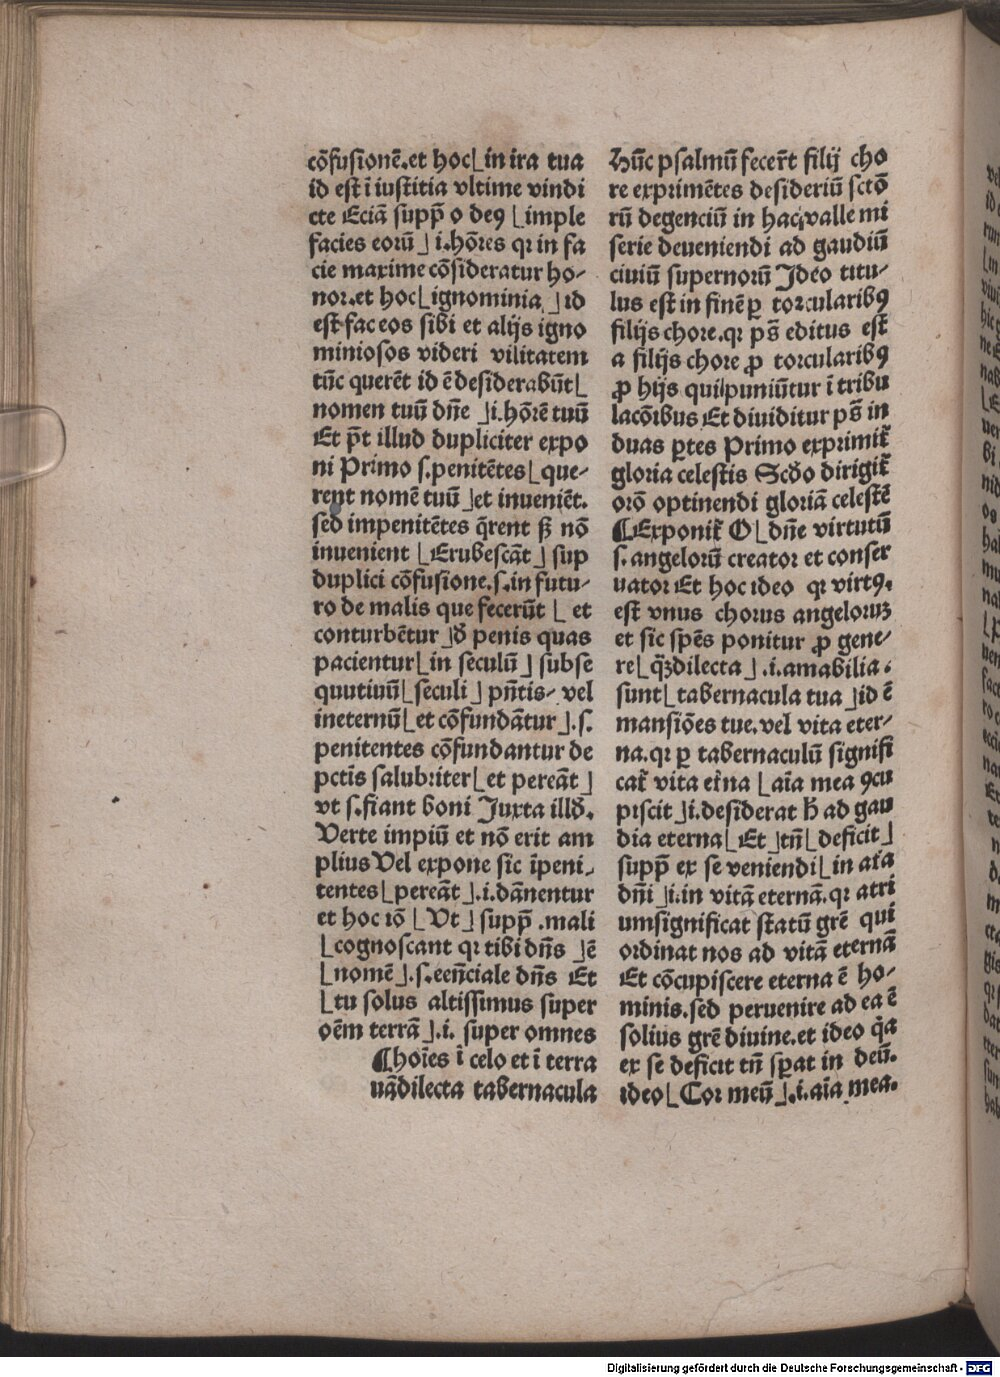 cōfusionē.et hoc⌊in ira tua
id est ī iustitia vltime vindi
cte Eciā supp̄ o deꝰ ⌊imple
facies eorū⌋ i.hōres qꝛ in fa
cie maxime cōsideratur ho-
nor.et hoc⌊ignominia⌋id
est fac eos sibi et alijs igno
miniosos videri vilitatem
tūc querēt id ē desiderabūt⌊
nomen tuū dn̄e ⌋i.hōrē tuū
Et p̄t illud dupliciter expo
ni Primo s.penitētes⌊que-
rent nomē tuū⌋et inueniēt.
sed impenitētes q̄rent sꝫ nō
inuenient ⌊Erubescāt⌋ sup
duplici cōfusione.s.in futu-
ro de malis que fecerūt ⌊ et
conturbētur⌋đ penis quas
pacientur⌊in seculū⌋ subse
quutiuū⌊seculi⌋ pn̄tis- vel
ineternū⌊et cōfundātur⌋.s.
penitentes cōfundantur de
pctīs salubriter⌊et pereāt⌋
vt s.fiant boni Juxta illđ.
Verte impiū et nō erit am
plius Vel expone sic īpeni-
tentes⌊pereāt⌋.i.dānentur
et hoc iō ⌊Vt⌋ supp̄ .mali
⌊cognoscant qꝛ tibi dn̄s ⌋ē
⌊nomē⌋.s.eēn̄ciale dn̄s Et
⌊tu solus altissimus super
oēm terrā⌋.i. super omnes
¶hoīes ī celo et ī terra
uādilecta tabernacula
Hūc psalmū fecer̄t filij cho
re exprimētes desideriū sctō
rū degenciū in hac valle mi
serie deueniendi ad gaudiū
ciuiū supernorū Jdeo titu-
lus est in finē ꝑ torcularibꝰ
filijs chore.qꝛ ps̄ editus est
a filijs chore ꝓ torcularibꝰ
ꝓ hijs qui puniūtur ī tribu
lacōibus Et diuiditur ps̄ in
duas ꝑtes Primo exprimit᷑
gloria celestis Scđo dirigit᷑
orō optinendi gloriā celestē
¶Exponit᷑ O⌊dn̄e virtutū
s.angelorū creator et conser
uator Et hoc ideo qꝛ virtꝰ.
est vnus chorus angelorum
et sic spēs ponitur ꝓ gene-
re⌊q̄ꝫdilecta⌋.i.amabilia.
sunt⌊tabernacula tua⌋id ē
mansiōes tue.vel vita eter-
na.qꝛ ꝑ tabernaculū signifi
cat᷑ vita et᷑na ⌊aīa mea ꝯcu
piscit⌋i.desiderat ħ ad gau
dia eterna⌊Et⌋tn̄⌊deficit⌋
supp̄ ex se veniendi⌊in at᷑a
dn̄i⌋i.in vitā eternā.qꝛ atri
umsignificat statū grē qui
ordinat nos ad vitā eternā
Et cōcupiscere eterna ē ho-
minis.sed peruenire ad ea ē
solius grē diuine.et ideo q̄a
ex se deficit tn̄ sꝑat in deū.
ideo⌊Cor meū⌋.i.aīa mea.
Digitalisierung gefördert durch die Deutsche Forschungsgemeinschaft - DFG